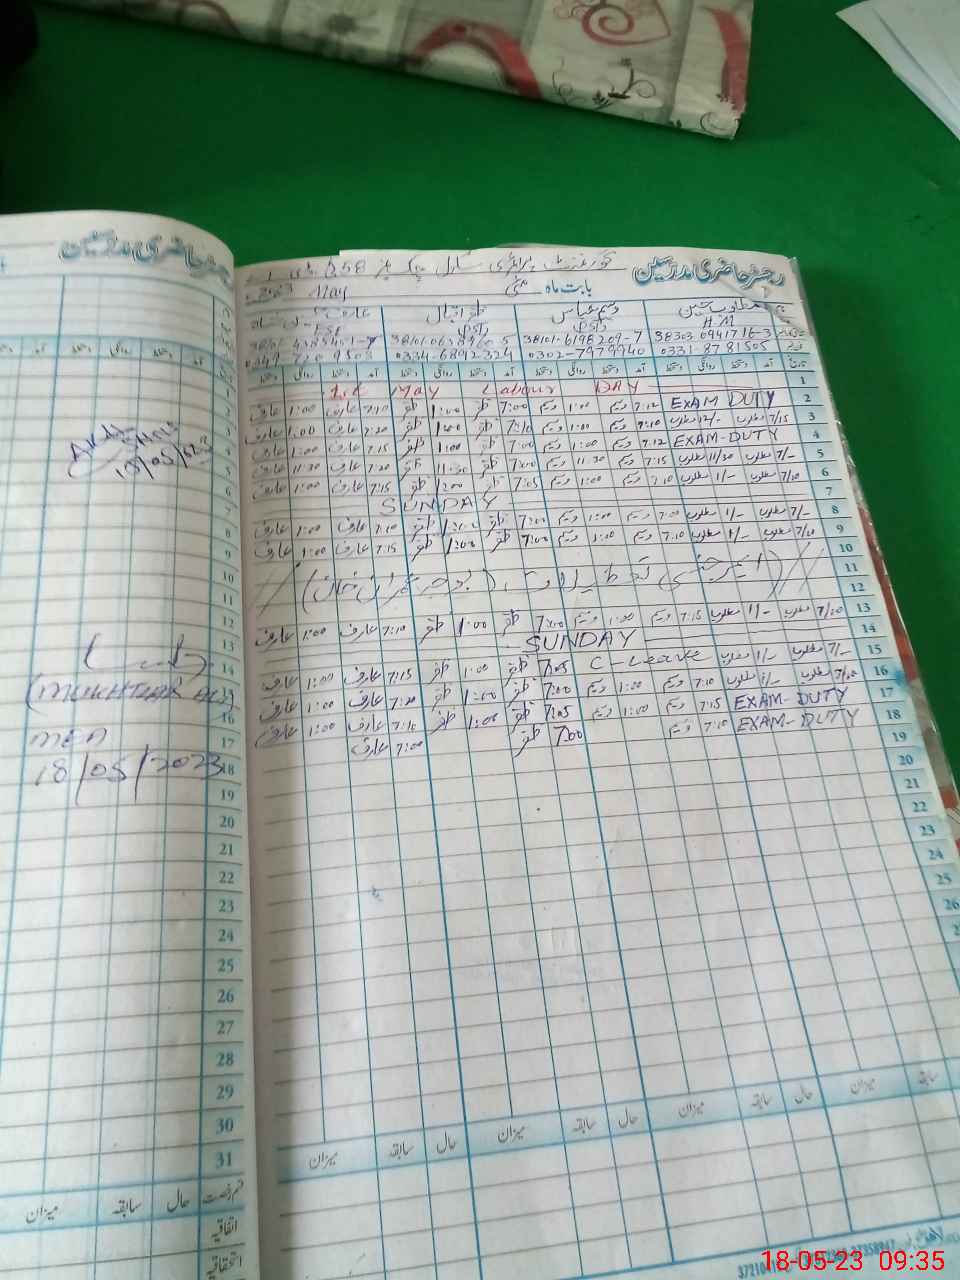 رجسٹر حاضری مدرسین
گورنمنٹ پرائمری سکول
رجسٹر حاضری مدرسین
بابت ماہ مئی May
وسیم عباس ظفر اقبال عارف
H M PST PST
38303-0941716-3 38101-6198209-7
0331-8781505 0302-7979940 0334-6892324
تاریخ آمد دستخط روانگی دستخط آمد دستخط روانگی دستخط آمد دستخط روانگی دستخط آمد دستخط روانگی دستخط
1 1st May Labour DAY
2 EXAM DUTY 7:12 وسیم 1:00 وسیم 7:00 ظفر 1:00 ظفر 7:10 عارف 1:00 عارف
3 7/15 مطلوب 12/- مطلوب 7:10 وسیم 1:00 وسیم 7:10 ظفر 1:00 ظفر 7:20 عارف 1:00 عارف
4 EXAM-DUTY 7:12 وسیم 1:00 وسیم 7:00 ظفر 1:00 ظفر 7:15 عارف 1:00 عارف
5 7/- مطلوب 11/30 مطلوب 7:15 وسیم 11:30 وسیم 7:00 ظفر 11:30 ظفر 7:20 عارف 11:30 عارف
6 7/10 مطلوب 1/- مطلوب 7:10 وسیم 1:00 وسیم 7:05 ظفر 1:00 ظفر 7:15 عارف 1:00 عارف
7 SUNDAY
8 7/- مطلوب 1/- مطلوب 7:00 وسیم 1:00 وسیم 7:00 ظفر 1:00 ظفر 7:10 عارف 1:00 عارف
9 7/10 مطلوب 1/- مطلوب 7:10 وسیم 1:00 وسیم 7:00 ظفر 1:00 ظفر 7:15 عارف 1:00 عارف
10
11 (ایمرجنسی تعطیلات) (بوجہ عمران خان)
12
13 7/10 مطلوب 1/- مطلوب 7:15 وسیم 1:00 وسیم 7:00 ظفر 1:00 ظفر 7:10 عارف 1:00 عارف
14 SUNDAY
15 7/- مطلوب 1/- مطلوب C-Leave 7:05 ظفر 1:00 ظفر 7:15 عارف 1:00 عارف
16 7/10 مطلوب 1/- مطلوب 7:10 وسیم 1:00 وسیم 7:00 ظفر 1:00 ظفر 7:20 عارف 1:00 عارف
17 EXAM-DUTY 7:15 وسیم 1:00 وسیم 7:05 ظفر 1:00 ظفر 7:10 عارف 1:00 عارف
18 EXAM-DUTY 7:10 وسیم 7:00 ظفر 7:00 عارف
19
20
21
22
23
24
25
26
سابقہ میزان حال سابقہ میزان حال سابقہ میزان حال سابقہ میزان
(MUKHTIAR ALI)
MEA
18/05/2023
1
2
3
4
5
6
7
8
9
10
11
12
13
14
16
17
18
19
20
21
22
23
24
25
26
27
28
29
30
31
قسم رخصت حال سابقہ میزان
اتفاقیہ
استحقاقیہ
18-05-23 09:35